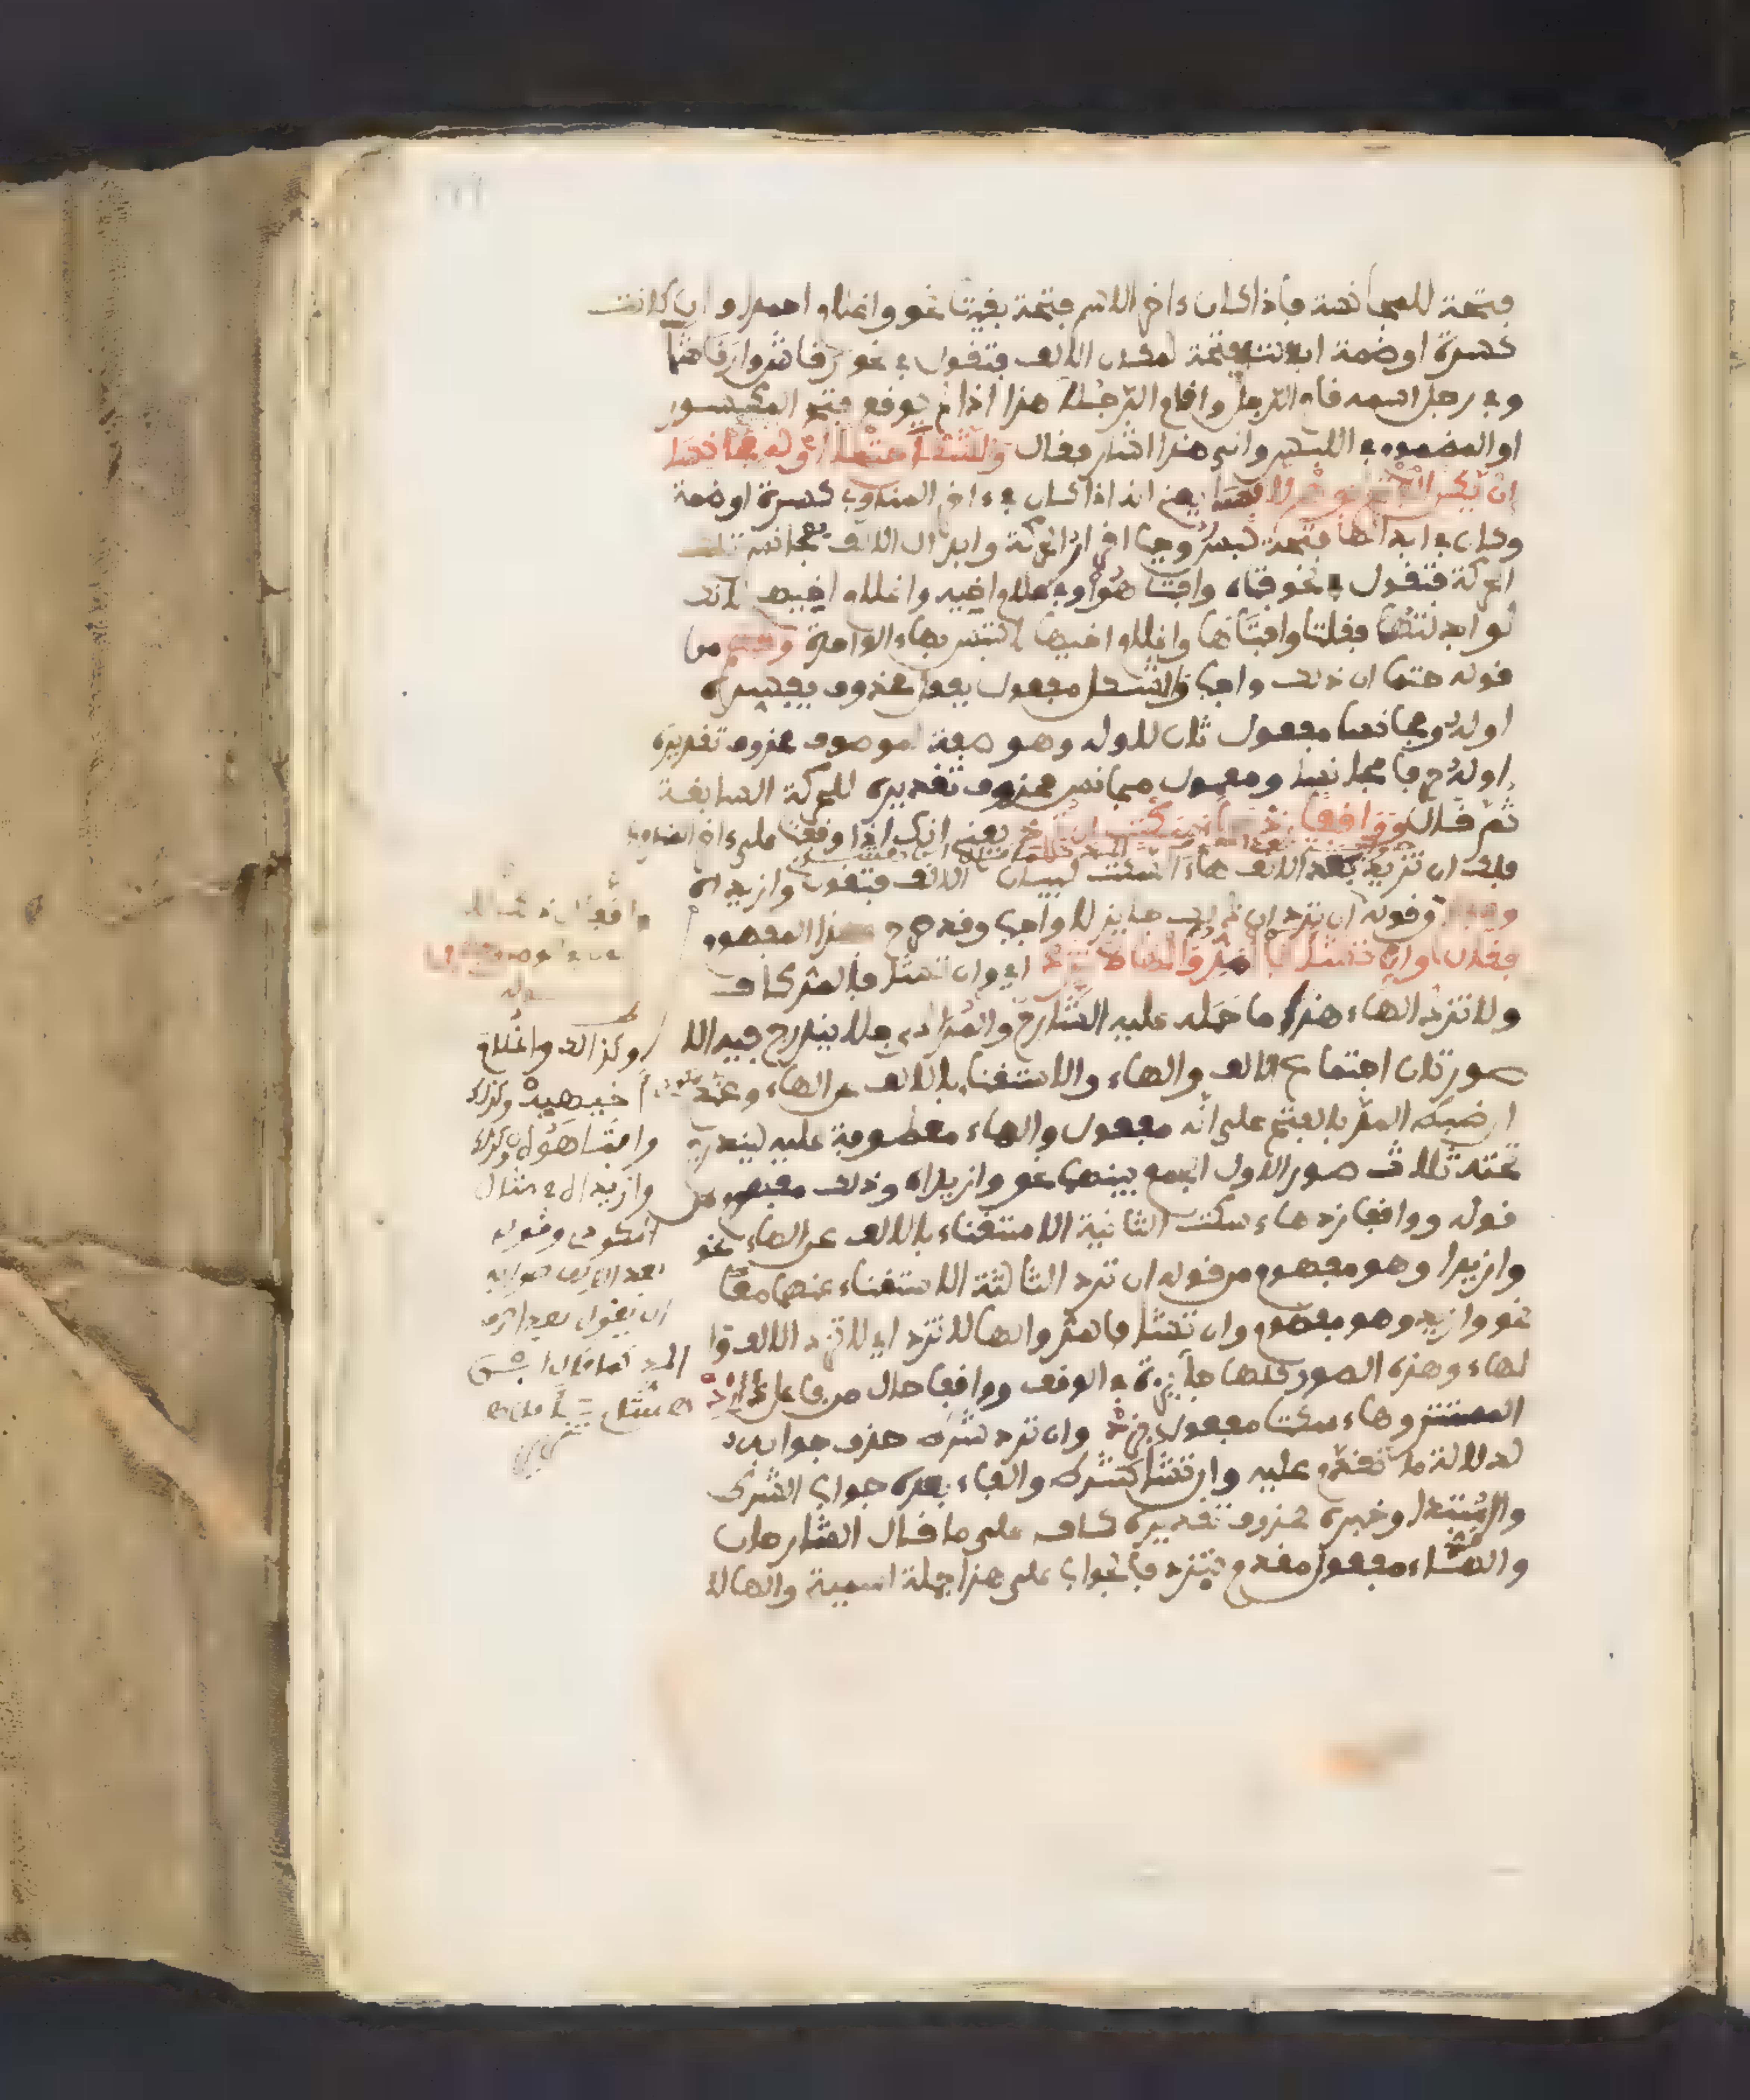 فتحة للمجانسة فإذا كان ءاخر الاسم فتحة بقيت نحو واغلام احمدا وان كانت
كسرة او ضمة ابدلت فتحة لمكان الالف فتقول في نحو رقاش وارقاشا
وفي رجل اسمه قام الرجل واقام الرجلا هذا اذا لم يوقع فتح المكسور
او المضموم في اللبس والى هذا اشار فقال والشكل حتما اوله مجانسا
ان يكن الفتح بوهم لابسا يعني انه اذا كان في ءاخر المندوب كسرة او ضمة
وكان في ابدالها فتحة لبس وجب اقرار الحركة وابدال الالف بمجانس تلك
الحركة فتقول في نحو فتاه وافتاهوا وفي غلام اخيه واغلام اخيهي لانك
لو ابدلتها فقلت وافتاها واغلام اخيها لالتبس بهاء الواحدة وفهم من
قوله حتما ان ذلك واجب والشكل مفعول بفعل محذوف يفسره
اوله ومجانسا مفعول ثان لاوله وهو صفة لموصوف محذوف تقديره
اوله حرفا مجانسا ومعمول مجانس محذوف تقديره للحركة السابقة
ثم قال وواقفا زد هاء سكت ان ترد يعني انك اذا وقفت على ءاخر المندوب
فلك ان تزيد بعد الالف هاء السكت لبيان الالف فتقول وازيداه
وقوله ان ترد ان ذلك جايز لا واجب وقد صرح بهذا المفهوم
فقال وان تشا فالمد والها لا تزد اي وان تشا فالمد كاف
ولا تزد الهاء هذا ما حمله عليه الشارح والمرادي فلا يندرج فيه الا
صورتان اجتماع الالف والهاء والاستغناء بالالف عن الهاء وعندي
ان ضبط المد بالفتح على انه مفعول والهاء معطوفة عليه ليندرج
تحته ثلاث صور الاول الجمع بينهما نحو وازيداه وذلك مفهوم من
قوله وواقفا زد هاء سكت الثانية الاستغناء بالالف عن الهاء نحو
وازيدا وهو مفهوم من قوله ان ترد الثالثة الاستغناء عنهما معا
نحو وازيد وهو مفهوم وان تشا فالمد والها لا تزد اي لا تزد الالف وا
لهاء وهذه الصور كلها جايزة في الوقف وواقفا حال من فاعل زد
المستتر وهاء سكت مفعول بزد وان ترد شرط حذف جوابه
لدلالة ما تقدم عليه وان تشا شرط والفاء بعده جواب الشرط
والمد مبتدا وخبره محذوف تقديره كاف على ما قال الشارحان
والهاء مفعول مقدم بتزد فالجواب على هذا جملة اسمية والهالا
وكذالك واغلام
اخيهيه وكذلك
وافتاهوه وكذلك
وازيداه في مثال
وقوله
بعد الالف صوابه
ان يقول بعد احرف
المد كما قال